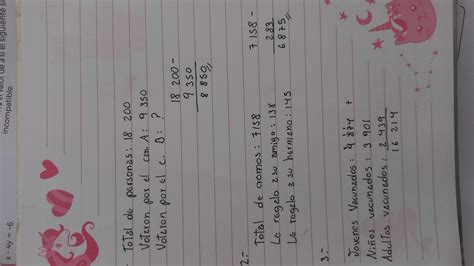 incompatible.
x - 4y = -6
Total de personas: 18 200
Votaron por el can. A: 9 350
Votaron por el c. B: ?
18 200 -
9 350
8 850
2=
Total de cromos: 7158
Le regalo a su amigo: 138
Le regalo a su hermano: 145
7 158 -
283
6 875
3=
Jovenes Vacunados: 9 874 +
Niños vacunados: 3 901
Adultos vacunados: 2 439
16 214